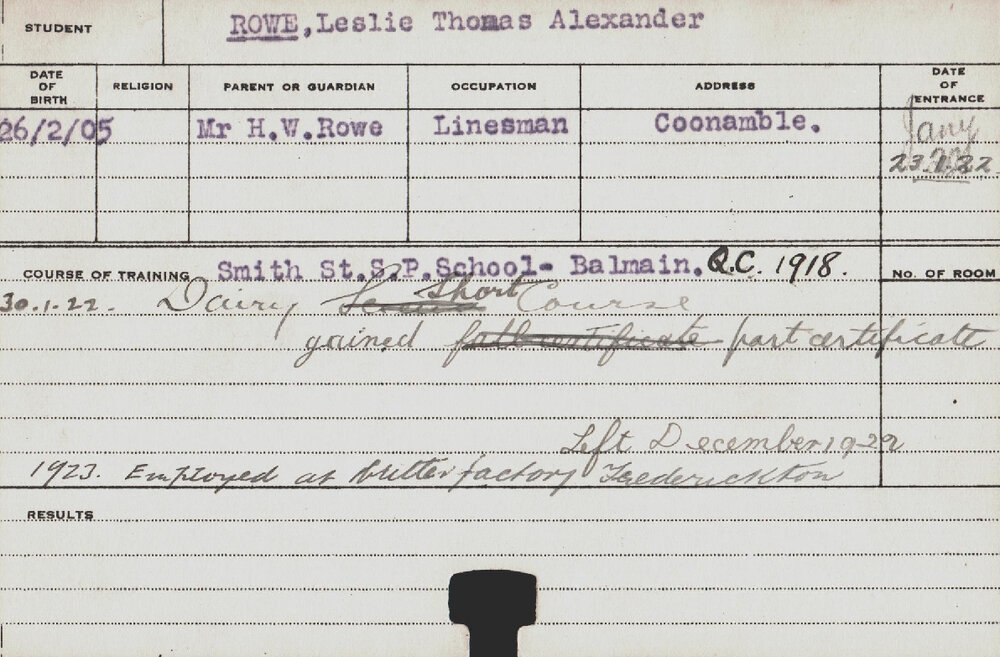 STUDENT ROWE, Leslie Thomas Alexander
DATE OF BIRTH RELIGION PARENT OR GUARDIAN OCCUPATION ADDRESS DATE OF ENTRANCE
26/2/05 Mr H.W.Rowe Linesman Coonamble. Jany
23.1.22.
COURSE OF TRAINING Smith St.S.P.School- Balmain. Q.C. 1918. NO. OF ROOM
30.1.22. Dairy Short Course
gained full certificate part certificate
Left December 1922
1923. Employed at butter factory Frederickton
RESULTS